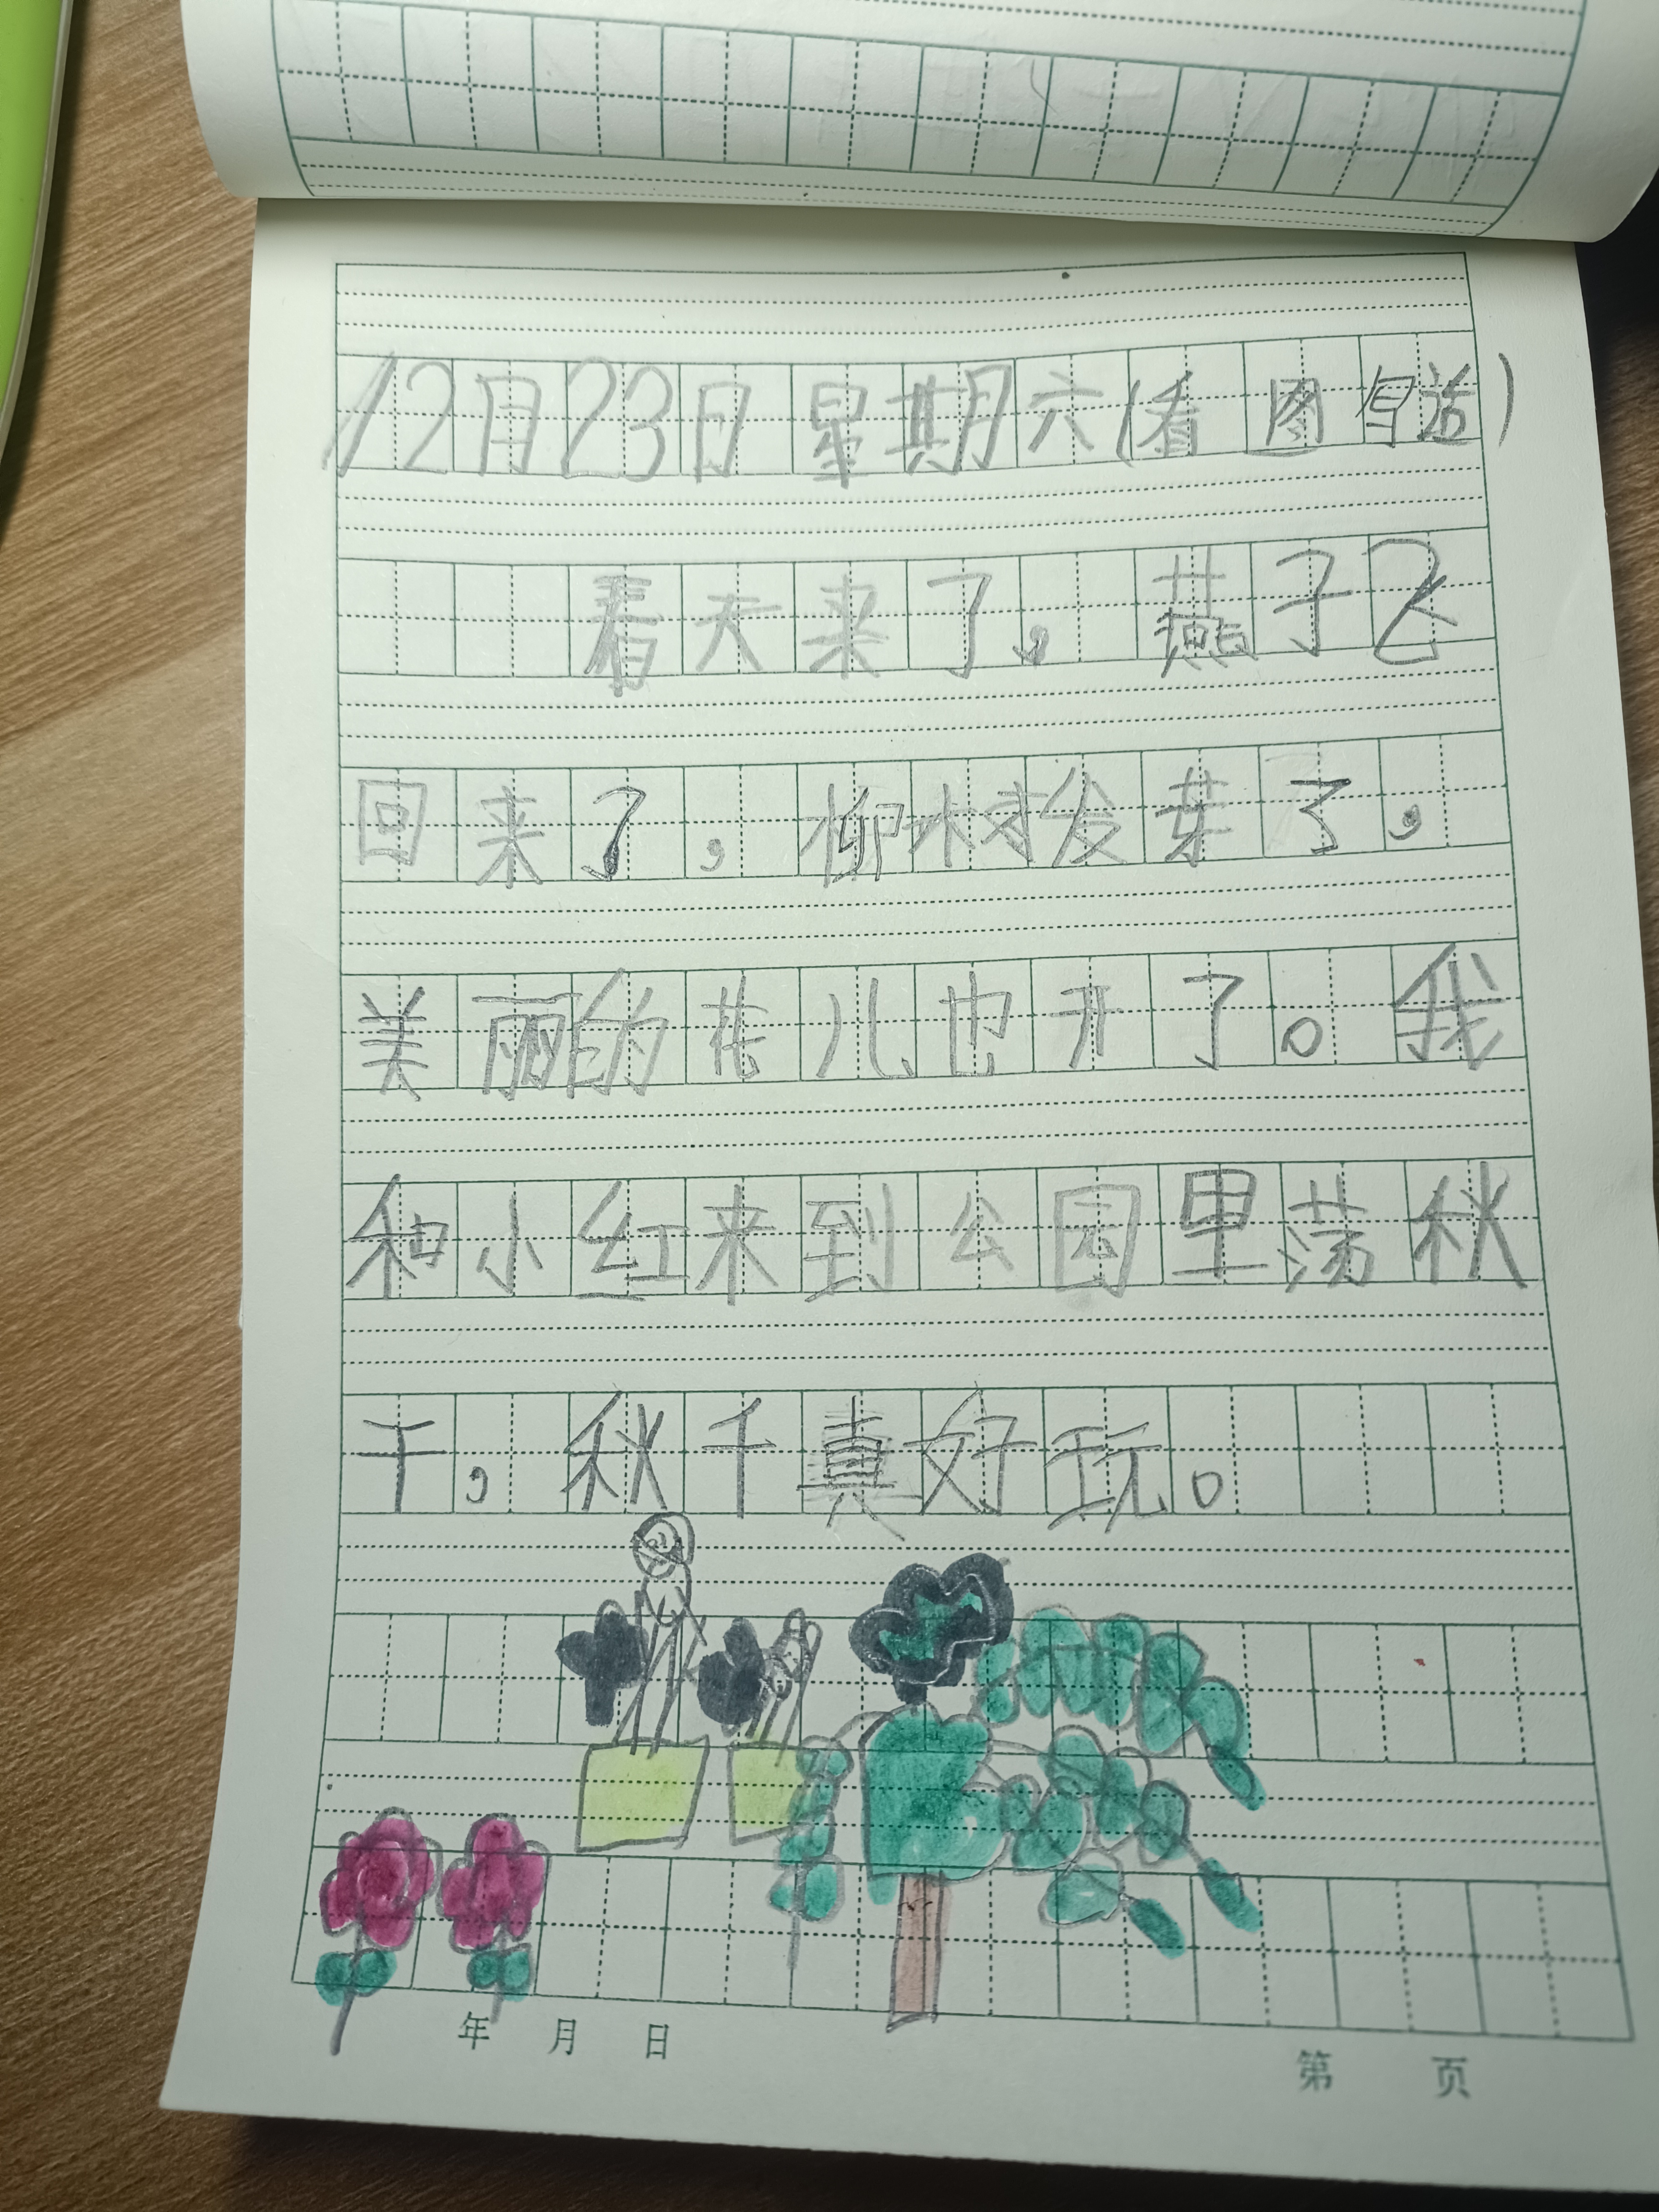 12月23日星期六(看图写话)
看天来了，燕子飞
回来了，柳树发芽了，
美丽的花儿也开了。我
和小红来到公园里荡秋
千，秋千真好玩。
年 月 日
第 页